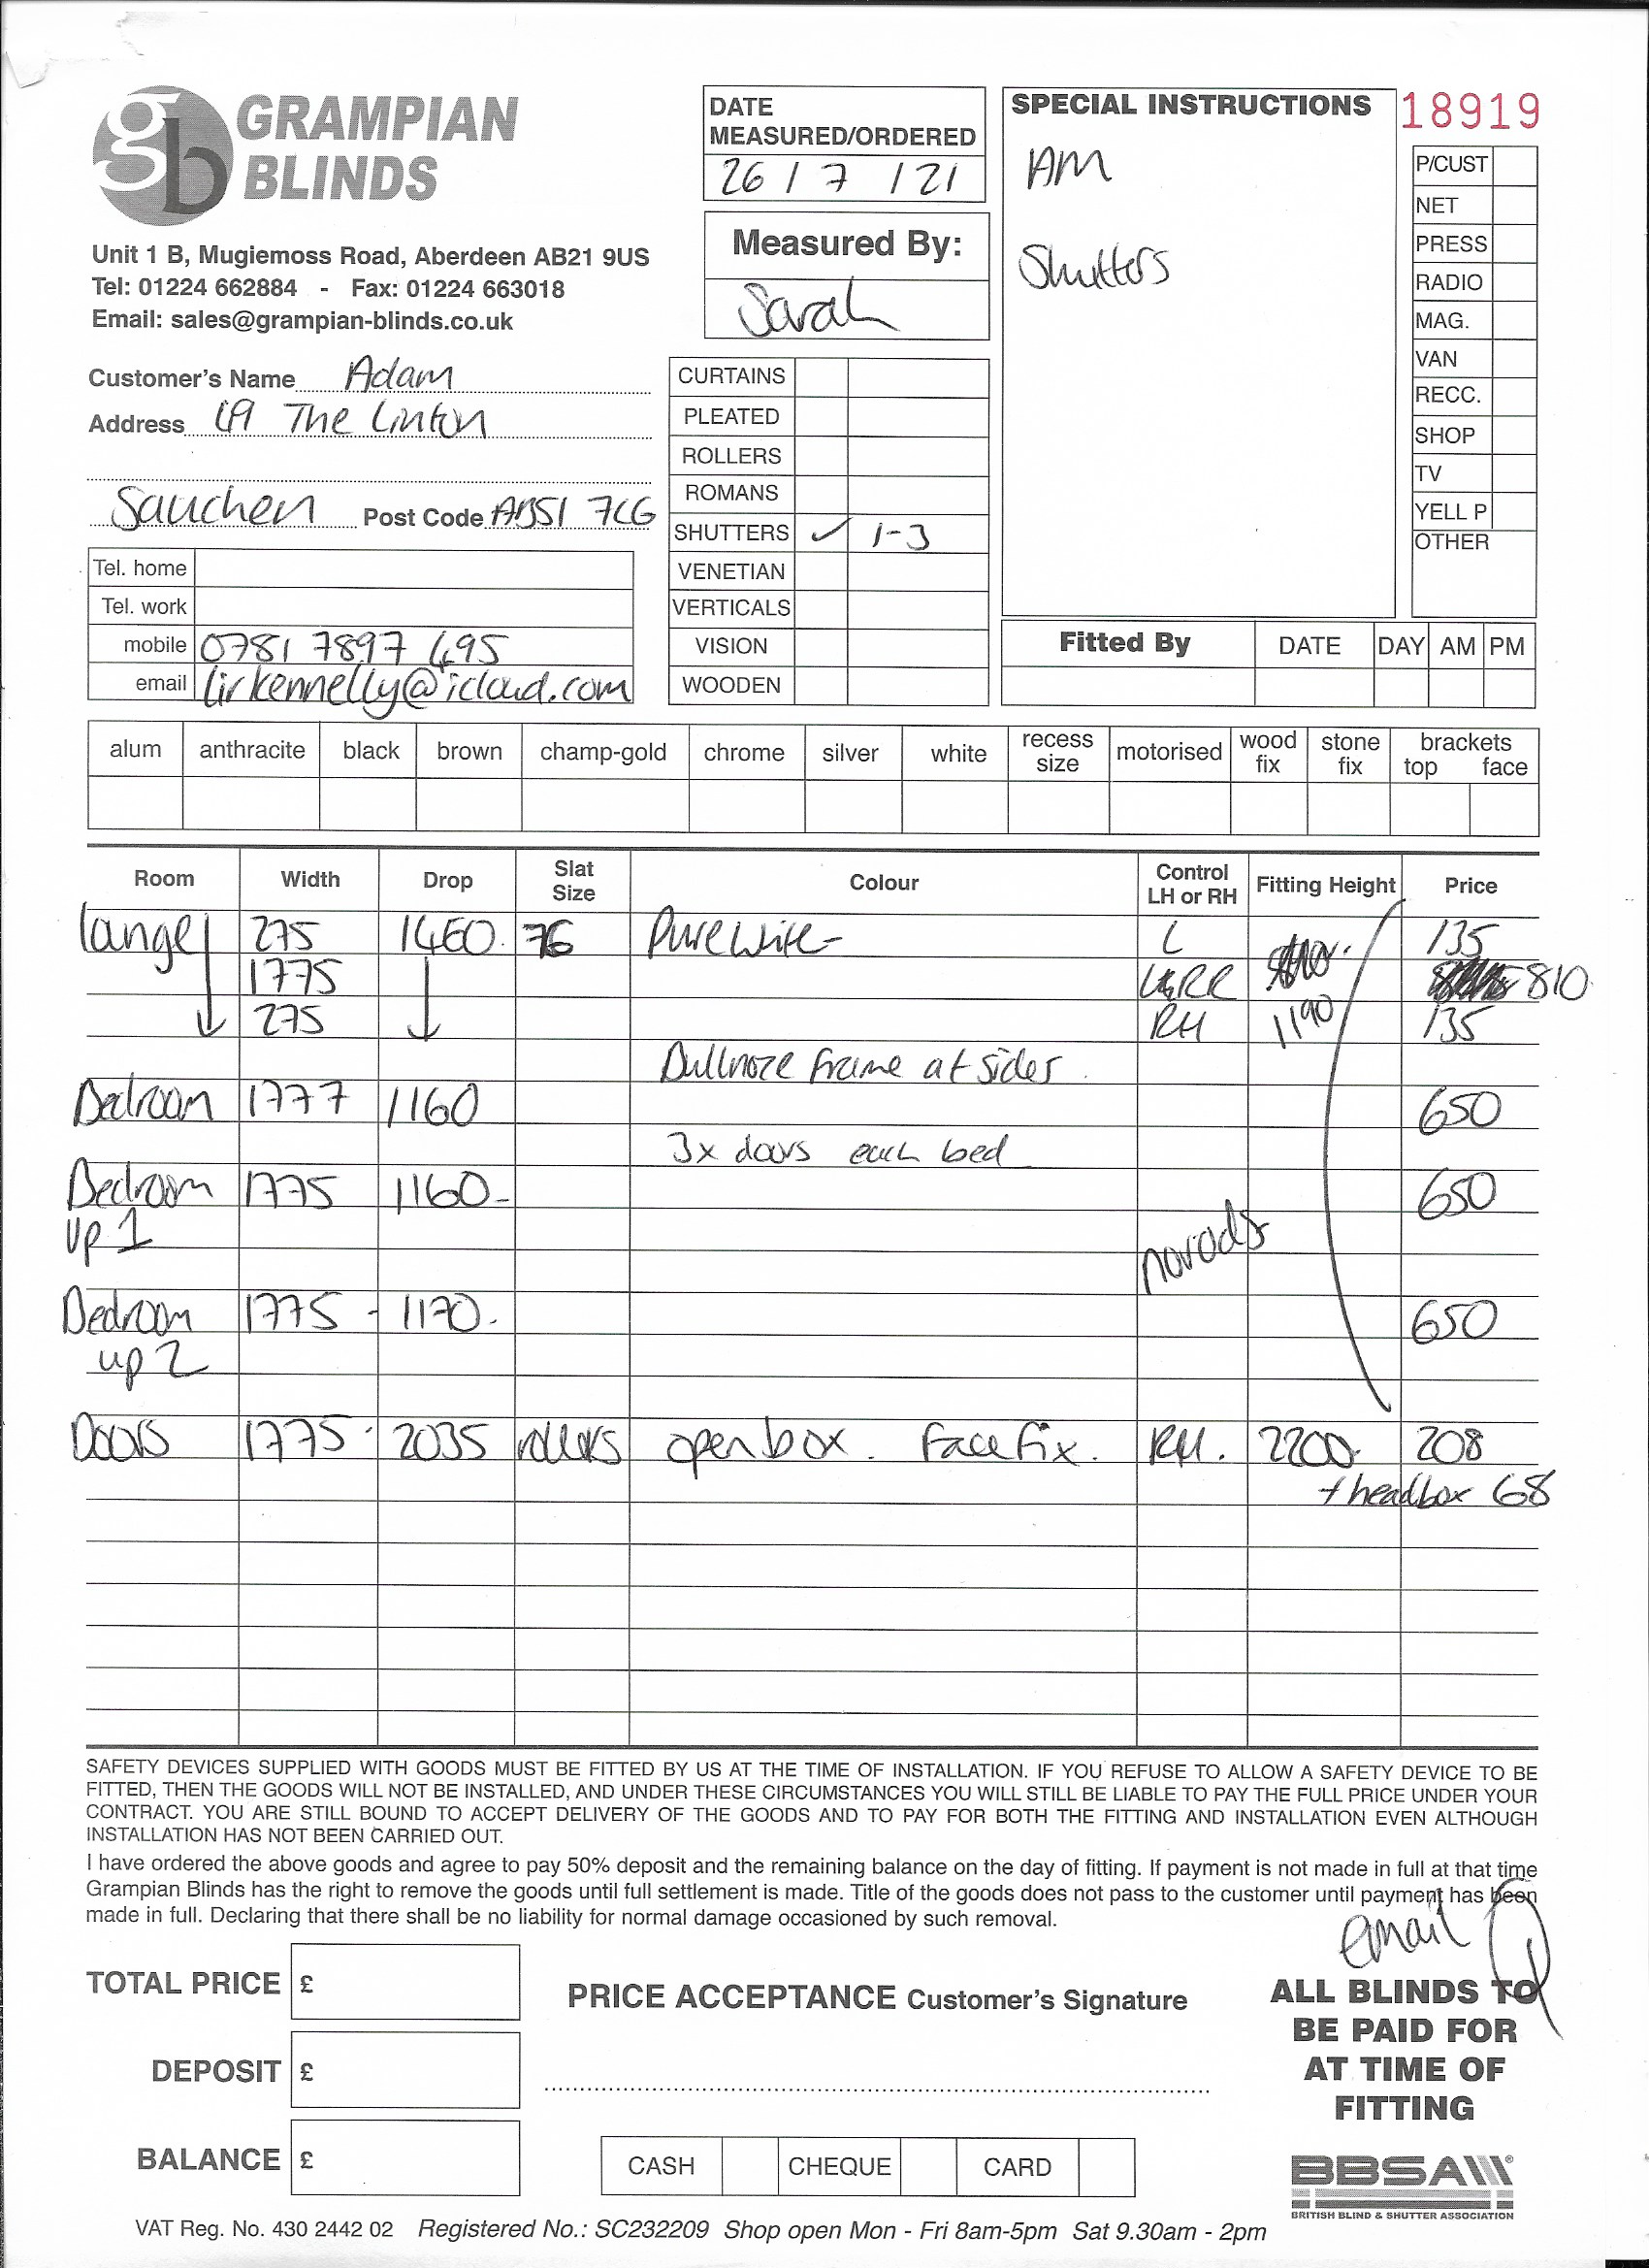 GRAMPIAN
BLINDS
Unit 1 B, Mugiemoss Road, Aberdeen AB21 9US
Tel: 01224 662884 - Fax: 01224 663018
Email: sales@grampian-blinds.co.uk
DATE
MEASURED/ORDERED
26 / 7 / 21
Measured By:
Sarah
SPECIAL INSTRUCTIONS
AM
Shutters
18919
P/CUST
NET
PRESS
RADIO
MAG.
VAN
RECC.
SHOP
TV
YELL P
OTHER
Customer's Name Adam
Address The Linton
Sauchen Post Code AB51 7LG
Tel. home
Tel. work
mobile 0781 7897 495
email lirkennelly@icloud.com
CURTAINS
PLEATED
ROLLERS
ROMANS
SHUTTERS ✓ 1-3
VENETIAN
VERTICALS
VISION
WOODEN
Fitted By DATE DAY AM PM
alum anthracite black brown champ-gold chrome silver white recess size motorised wood fix stone fix brackets top face
Room Width Drop Slat Size Colour Control LH or RH Fitting Height Price
Lounge 275 1460. 76 Pure White L 135
1775 810
275 RH 1190 135
Bullnoze frame at sides.
Bedroom 1777 1160 650
3x doors each bed
Bedroom 1775 1160- 650
up 1
no rods
Bedroom 1775 - 1170. 650
up 2
Doors 1775 2035 rollers open box. Face fix. RH. 2200 208
+ headbox 68
SAFETY DEVICES SUPPLIED WITH GOODS MUST BE FITTED BY US AT THE TIME OF INSTALLATION. IF YOU REFUSE TO ALLOW A SAFETY DEVICE TO BE
FITTED, THEN THE GOODS WILL NOT BE INSTALLED, AND UNDER THESE CIRCUMSTANCES YOU WILL STILL BE LIABLE TO PAY THE FULL PRICE UNDER YOUR
CONTRACT. YOU ARE STILL BOUND TO ACCEPT DELIVERY OF THE GOODS AND TO PAY FOR BOTH THE FITTING AND INSTALLATION EVEN ALTHOUGH
INSTALLATION HAS NOT BEEN CARRIED OUT.
I have ordered the above goods and agree to pay 50% deposit and the remaining balance on the day of fitting. If payment is not made in full at that time
Grampian Blinds has the right to remove the goods until full settlement is made. Title of the goods does not pass to the customer until payment has been
made in full. Declaring that there shall be no liability for normal damage occasioned by such removal.
email
TOTAL PRICE £
PRICE ACCEPTANCE Customer's Signature
DEPOSIT £
BALANCE £
CASH CHEQUE CARD
ALL BLINDS TO
BE PAID FOR
AT TIME OF
FITTING
BBSA
BRITISH BLIND & SHUTTER ASSOCIATION
VAT Reg. No. 430 2442 02 Registered No.: SC232209 Shop open Mon - Fri 8am-5pm Sat 9.30am - 2pm